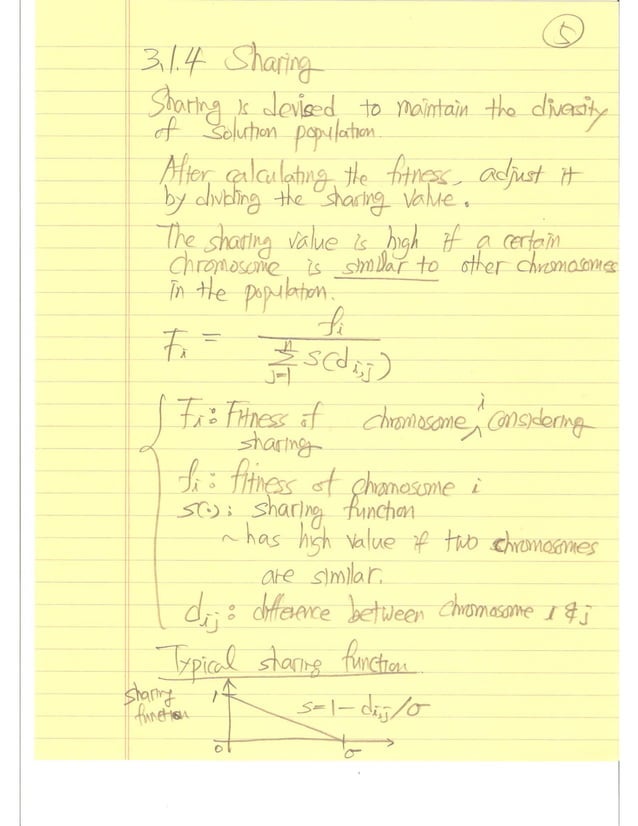 5
3.1.4 Sharing
Sharing is devised to maintain the diversity
of solution population.
After calculating the fitness, adjust it
by dividing the sharing value.
The sharing value is high if a certain
chromosome is similar to other chromosomes
in the population.
F_i = f_i / Σ_{j=1}^{n} s(d_{i,j})
F_i : Fitness of chromosome ^i considering
sharing
f_i : fitness of chromosome i
s(·) : sharing function
~ has high value if two chromosomes
are similar.
d_{ij} : difference between chromosome i & j
Typical sharing function
sharing
function
1
s = 1 - d_{i,j}/σ
0
σ